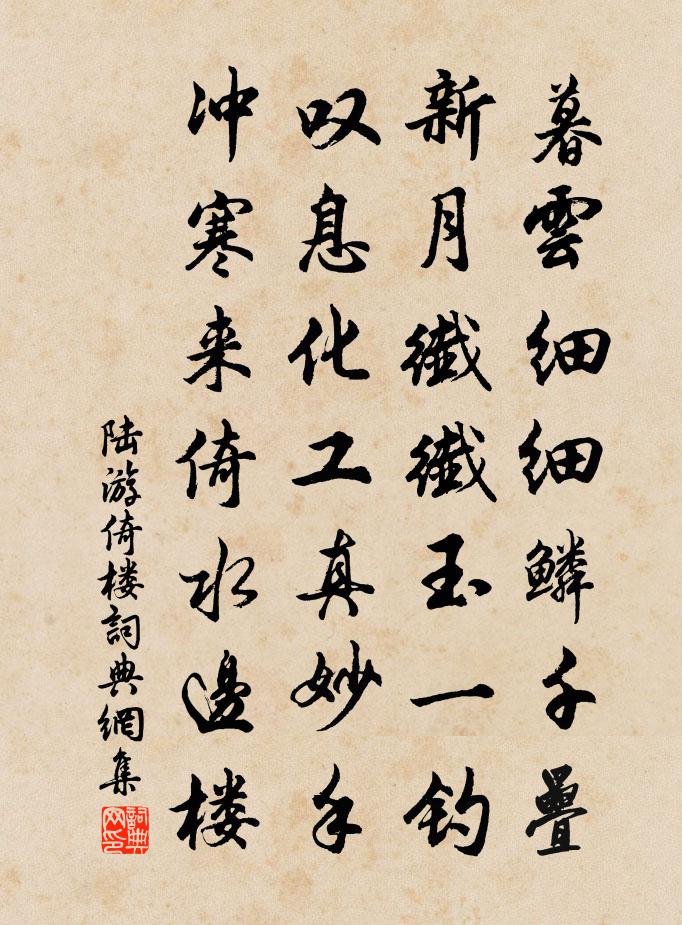 暮雲细细鳞千疊
新月纖纖玉一钓
叹息化工真妙手
冲寒来倚水邊楼
陆游倚楼詞典網集
詞典网印